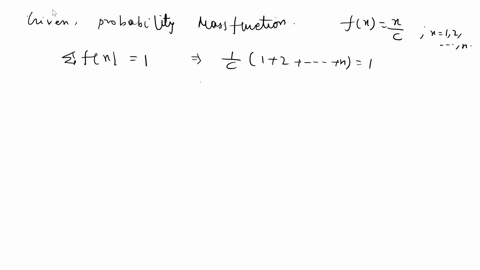 Given, probability Mass function. f(x) = x/c ; x=1,2, ...., n.
Σ f(x) = 1 ⇒ 1/c (1+2+----+n) = 1